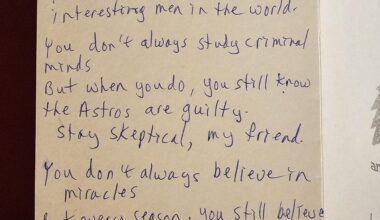 interesting men in the world.
You don't always study criminal
minds
But when you do, you still know
the Astros are guilty.
Stay skeptical, my friend.
You don't always believe in
miracles
every season, you still believe